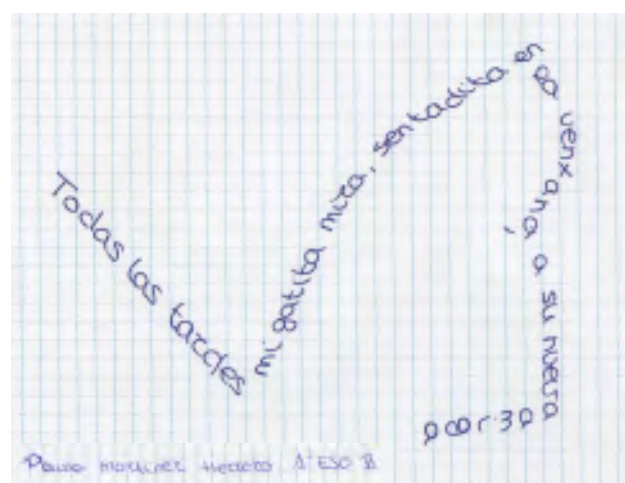 Todas las tardes
mi gatita mira, sentadita
en la ventana, a su nueva
Paula Martínez Herrero 1º ESO B